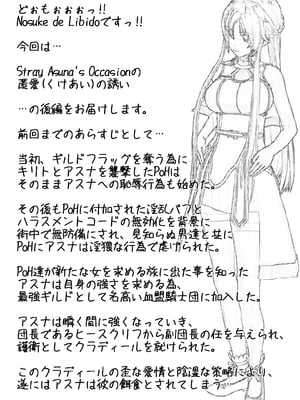 どぉもぉぉぉっ!!
Nosuke de Libidoですっ!!
今回は…
Stray Asuna's Occasionの
匿愛(くけあい)の誘い
…の後編をお届けします。
前回までのあらすじとして…
当初、ギルドフラッグを奪う為に
キリトとアスナを襲撃したPoHは
そのままアスナへの恥辱行為も始めた。
その後もPoHに付加された淫乱バフと
ハラスメントコードの無効化を背景に
街中で無防備にされ、見知らぬ男達と共に
PoHにアスナは淫猥な行為で虐げられた。
PoH達が新たな女を求める旅に出た事を知った
アスナは自身の強さを求める為、
最強ギルドとして名高い血盟騎士団に加入した。
アスナは瞬く間に強くなっていき、
団長であるヒースクリフから副団長の任を与えられ、
護衛としてクラディールを就けられた。
このクラディールの歪な愛情と陰湿な策略により、
遂にはアスナは彼の餌食とされてしまう…